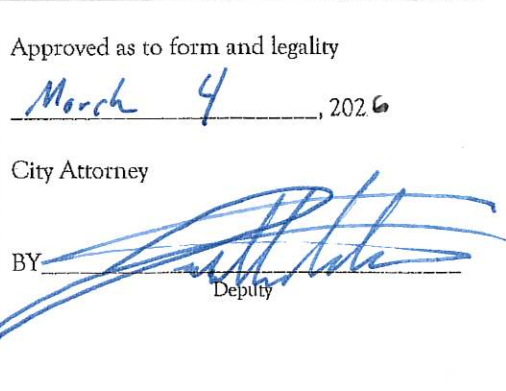 Approved as to form and legality
March 4, 2026
City Attorney
BY
Deputy